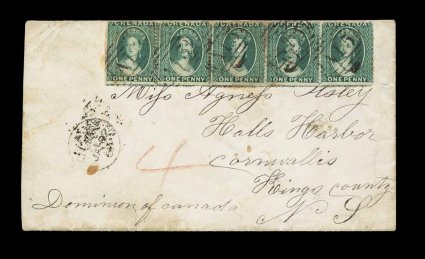 GRENADA GRENADA GRENADA GRENADA GRENADA
ONE PENNY ONE PENNY ONE PENNY ONE PENNY ONE PENNY
Miss Agness
Halls Harbor
Cornwallis
Kings county
Dominion of canada N S
4